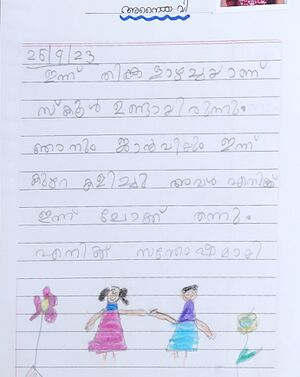 അനൈന വി
26/9/23
ഇന്ന് തിങ്കളാഴ്ചയാണ്
സ്കൂൾ ഉണ്ടായിരുന്നു.
ഞാനും ജാൻവിയും ഇന്ന്
കുറെ കളിച്ചു അവൾ എനിക്ക്
ഇന്ന് ലോക്ക് തന്നു.
എനിക്ക് സന്തോഷമായി